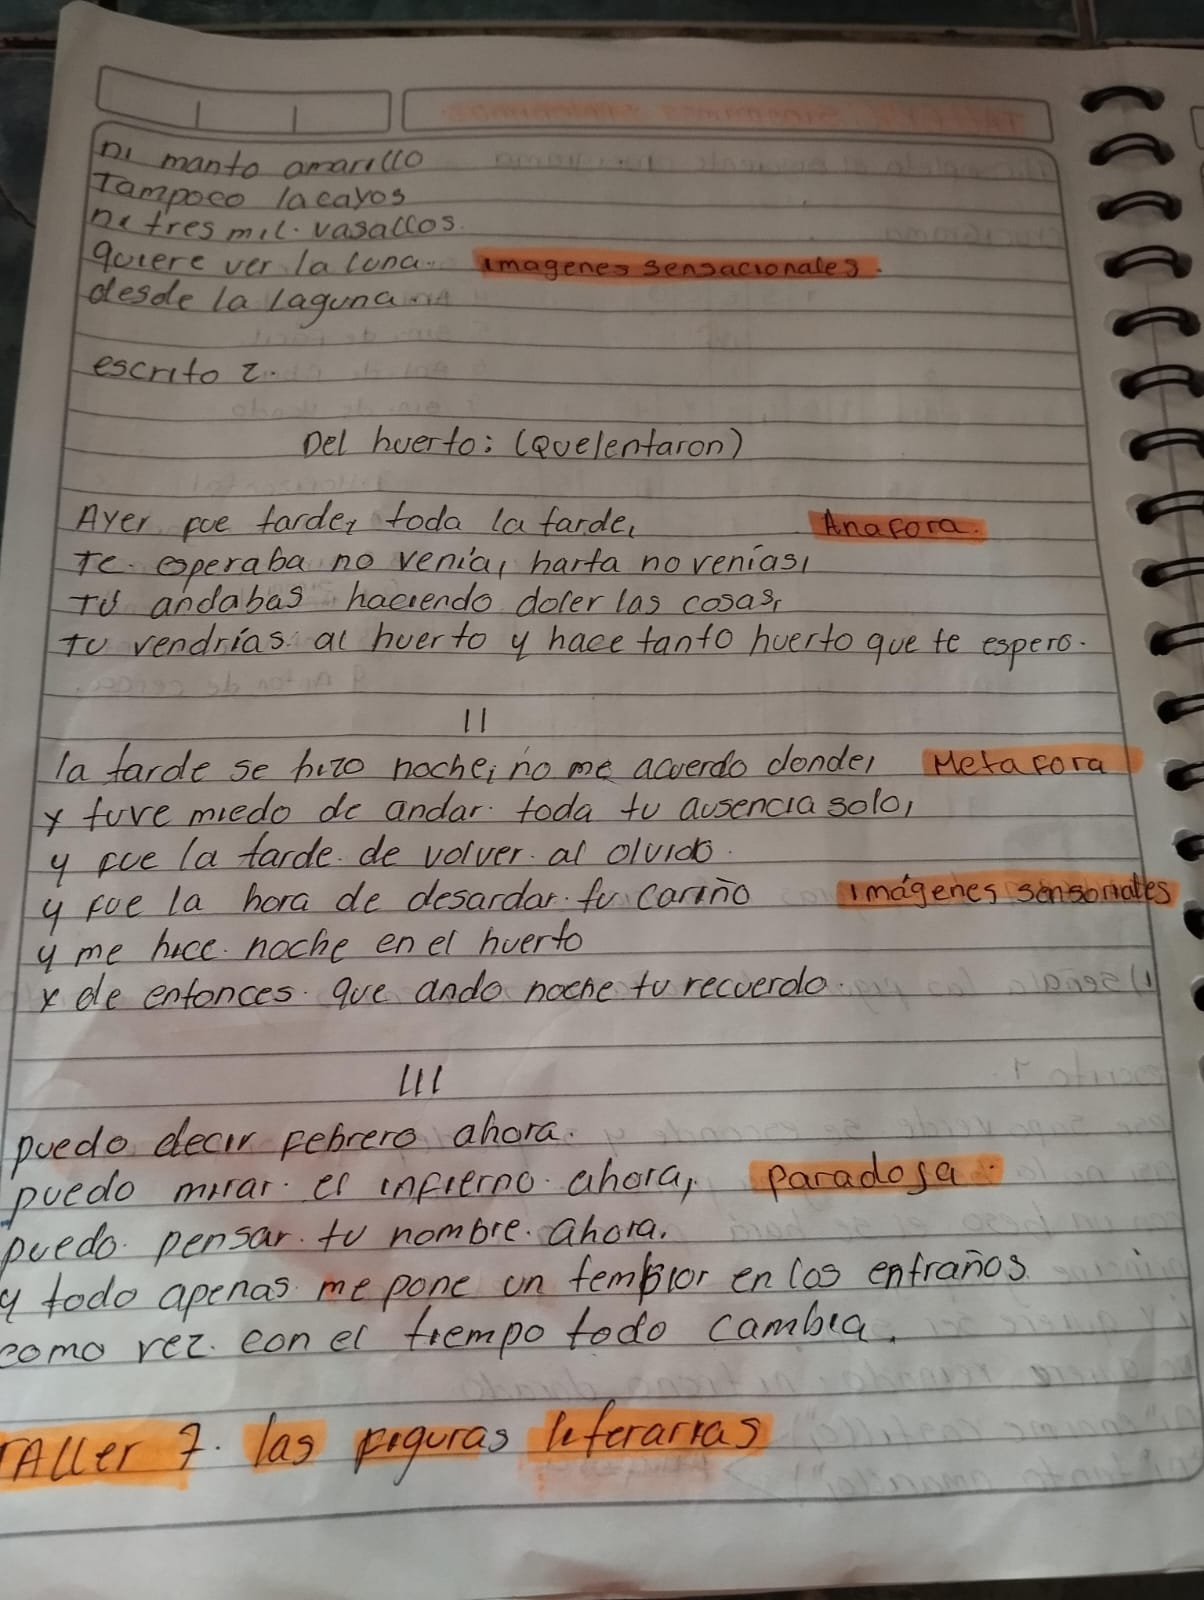 ni manto amarillo
Tampoco lacayos
ni tres mil. vasallos.
quiere ver la luna. imagenes sensacionales.
desde la laguna
escrito 2.
Del huerto: (Quelentaron)
Ayer fue tarde, toda la tarde, Anafora.
Te. esperaba no venía, harta no venías,
Tú andabas haciendo doler las cosas,
Tu vendrías. al huerto y hace tanto huerto que te espero.
II
la tarde se hizo noche, no me acuerdo donde, Metafora
y tuve miedo de andar. toda tu ausencia solo,
y fue la tarde. de volver. al olvido.
y fue la hora de desardar. tu cariño imágenes sensoriales
y me hice. noche en el huerto
y de entonces. que ando noche tu recuerdo.
III
puedo decir febrero ahora.
puedo mirar. el infierno. ahora, paradoja.
puedo. pensar. tu nombre. ahora.
y todo apenas. me pone un temblor en los entraños
como vez. con el tiempo todo cambia.
TAller 7. las figuras literarias